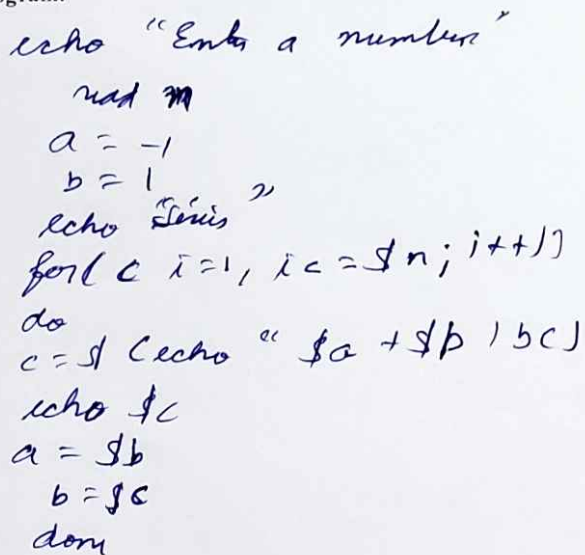 echo "Enter a number"
read n
a = -1
b = 1
echo "Series"
for(( i=1, i<=$n; i++))
do
c = $(echo "$a + $b | bc)
echo $c
a = $b
b = $c
done